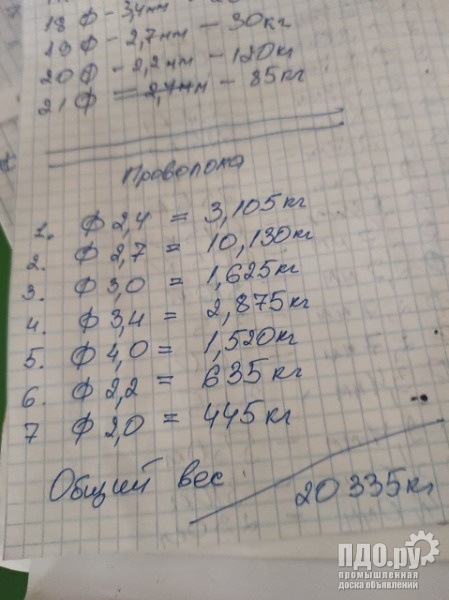 18 ф - 3,4мм
19 ф - 2,7мм - 30кг
20 ф - 2,2мм - 120кг
21 ф = 2,7мм - 85кг
Проволока
1. ф 2,4 = 3,105кг
2. ф 2,7 = 10,130кг
3. ф 3,0 = 1,625кг
4. ф 3,4 = 2,875кг
5. ф 4,0 = 1,520кг
6. ф 2,2 = 635кг
7 ф 2,0 = 445кг
Общий вес 20335кг
ПДО.ру
промышленная
доска объявлений